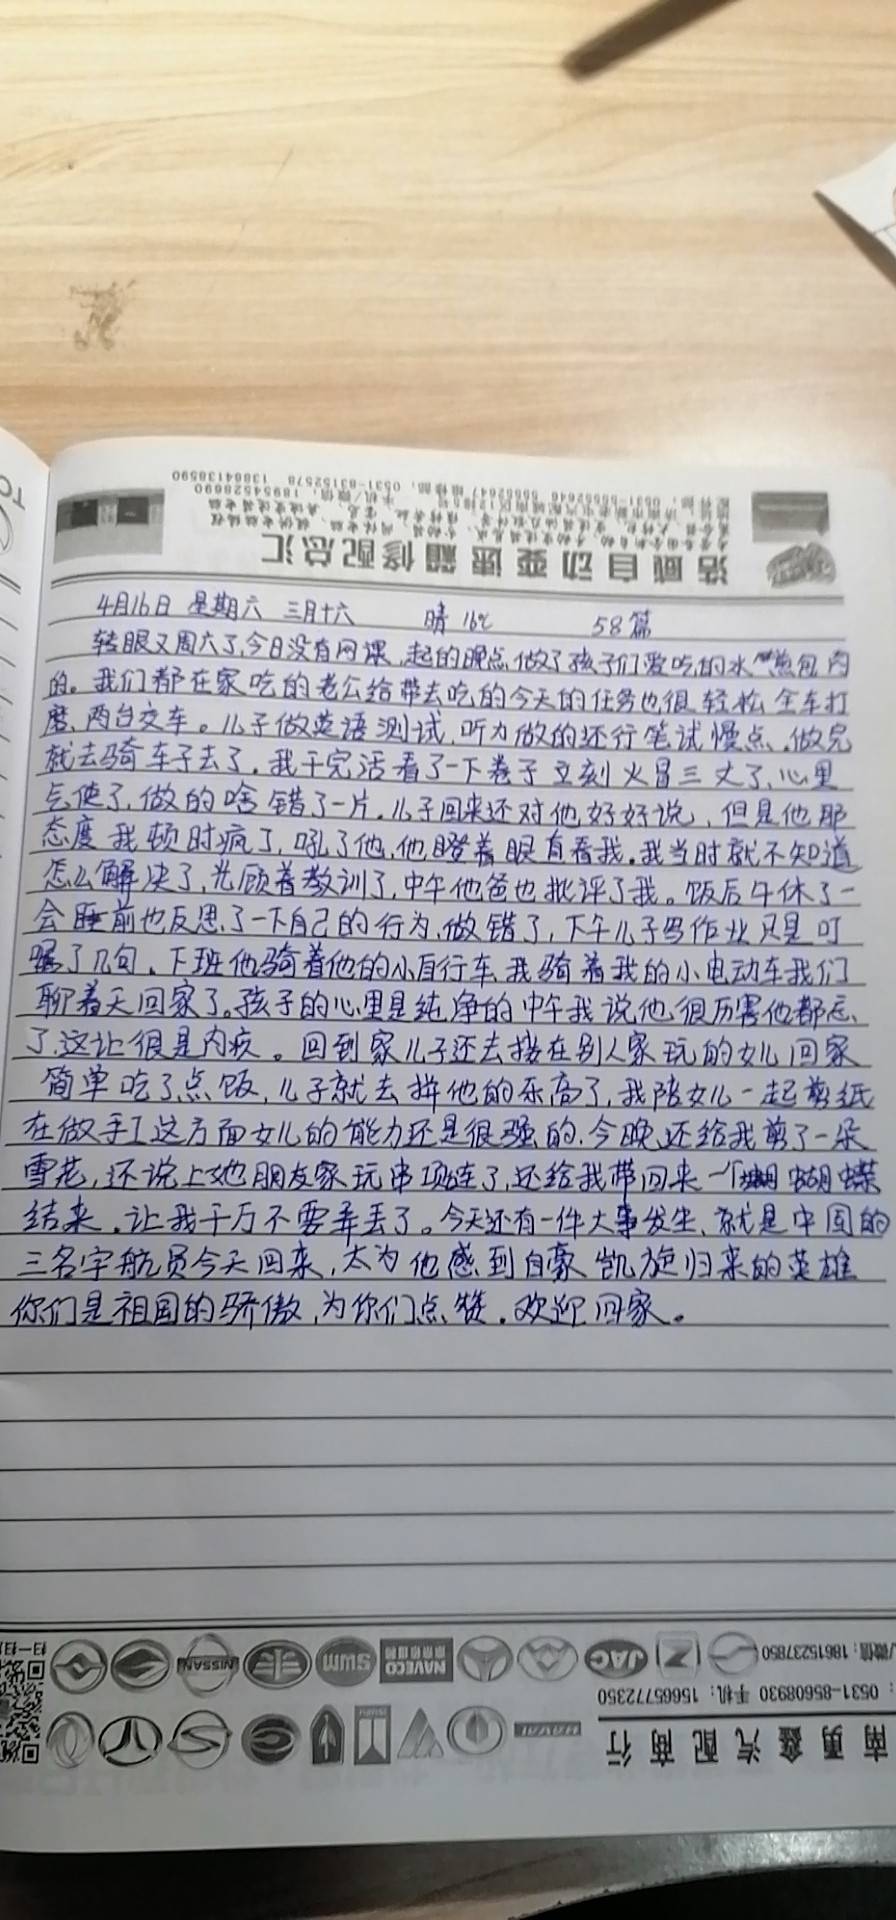 浩威自动变速箱修配总汇
4月16日 星期六 三月十六 晴 16℃ 58篇
转眼又周六了,今日没有网课,起的晚点,做了孩子们爱吃的水煎包肉
的。我们都在家吃的老公给带去吃的今天的任务也很轻松全车打
磨、两台交车。儿子做英语测试,听力做的还行笔试慢点、做完
就去骑车子去了。我干完活看了一下卷子立刻火冒三丈了、心里
做的啥错了一片。儿子回来还对他好好说,但是他那
态度我顿时疯了,吼了他,他瞪着眼直看我。我当时就不知道
怎么解决了,光顾着教训了,中午他爸也批评了我。饭后午休了一
会睡前也反思了一下自己的行为,做错了,下午儿子写作业只是叮
嘱了几句。下班他骑着他的小自行车,我骑着我的小电动车我们
聊着天回家了。孩子的心里是纯净的中午我说他很厉害他都忘
了,这让很是内疚。回到家儿子还去接在别人家玩的女儿回家
简单吃了点饭,儿子就去拼他的乐高了,我陪女儿一起剪纸
在做手工这方面女儿的能力还是很强的,今晚还给我剪了一朵
雪花,还说上她朋友家玩串项链了,还给我带回来一个蝴蝶
结来,让我千万不要弄丢了。今天还有一件大事发生、就是中国的
三名宇航员今天回来,太为他感到自豪 凯旋归来的英雄
你们是祖国的骄傲,为你们点赞。欢迎回家。
扫一扫
NISSAN
SWM
NAVECO
JAC
/微信:18615237850
:0531-85608930 手机:15665772350
ISUZU
HAVAL
南勇鑫汽配商行